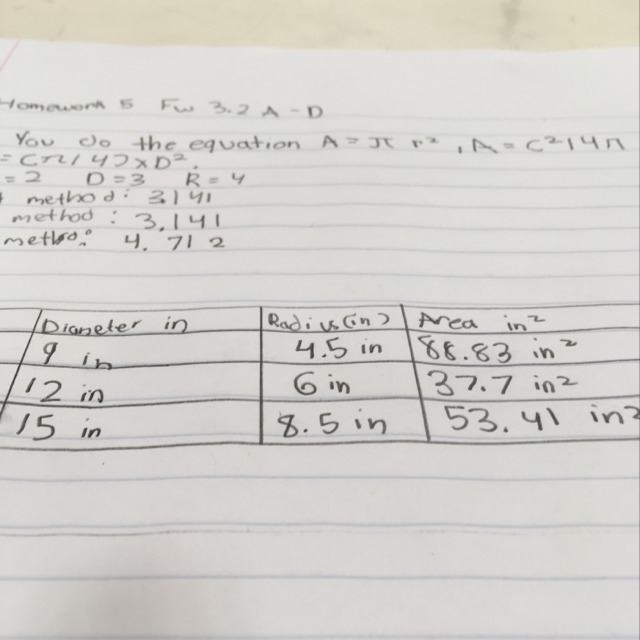 Homework 5 FW 3.2 A-D
You do the equation A=π r², A=C²/4π
=Cπ/4)×D².
=2 D=3 R=4
method: 3.141
method: 3.141
metho: 4.712
Diameter in Radius(in) Area in²
9 in 4.5 in 88.83 in²
12 in 6 in 37.7 in²
15 in 8.5 in 53.41 in²